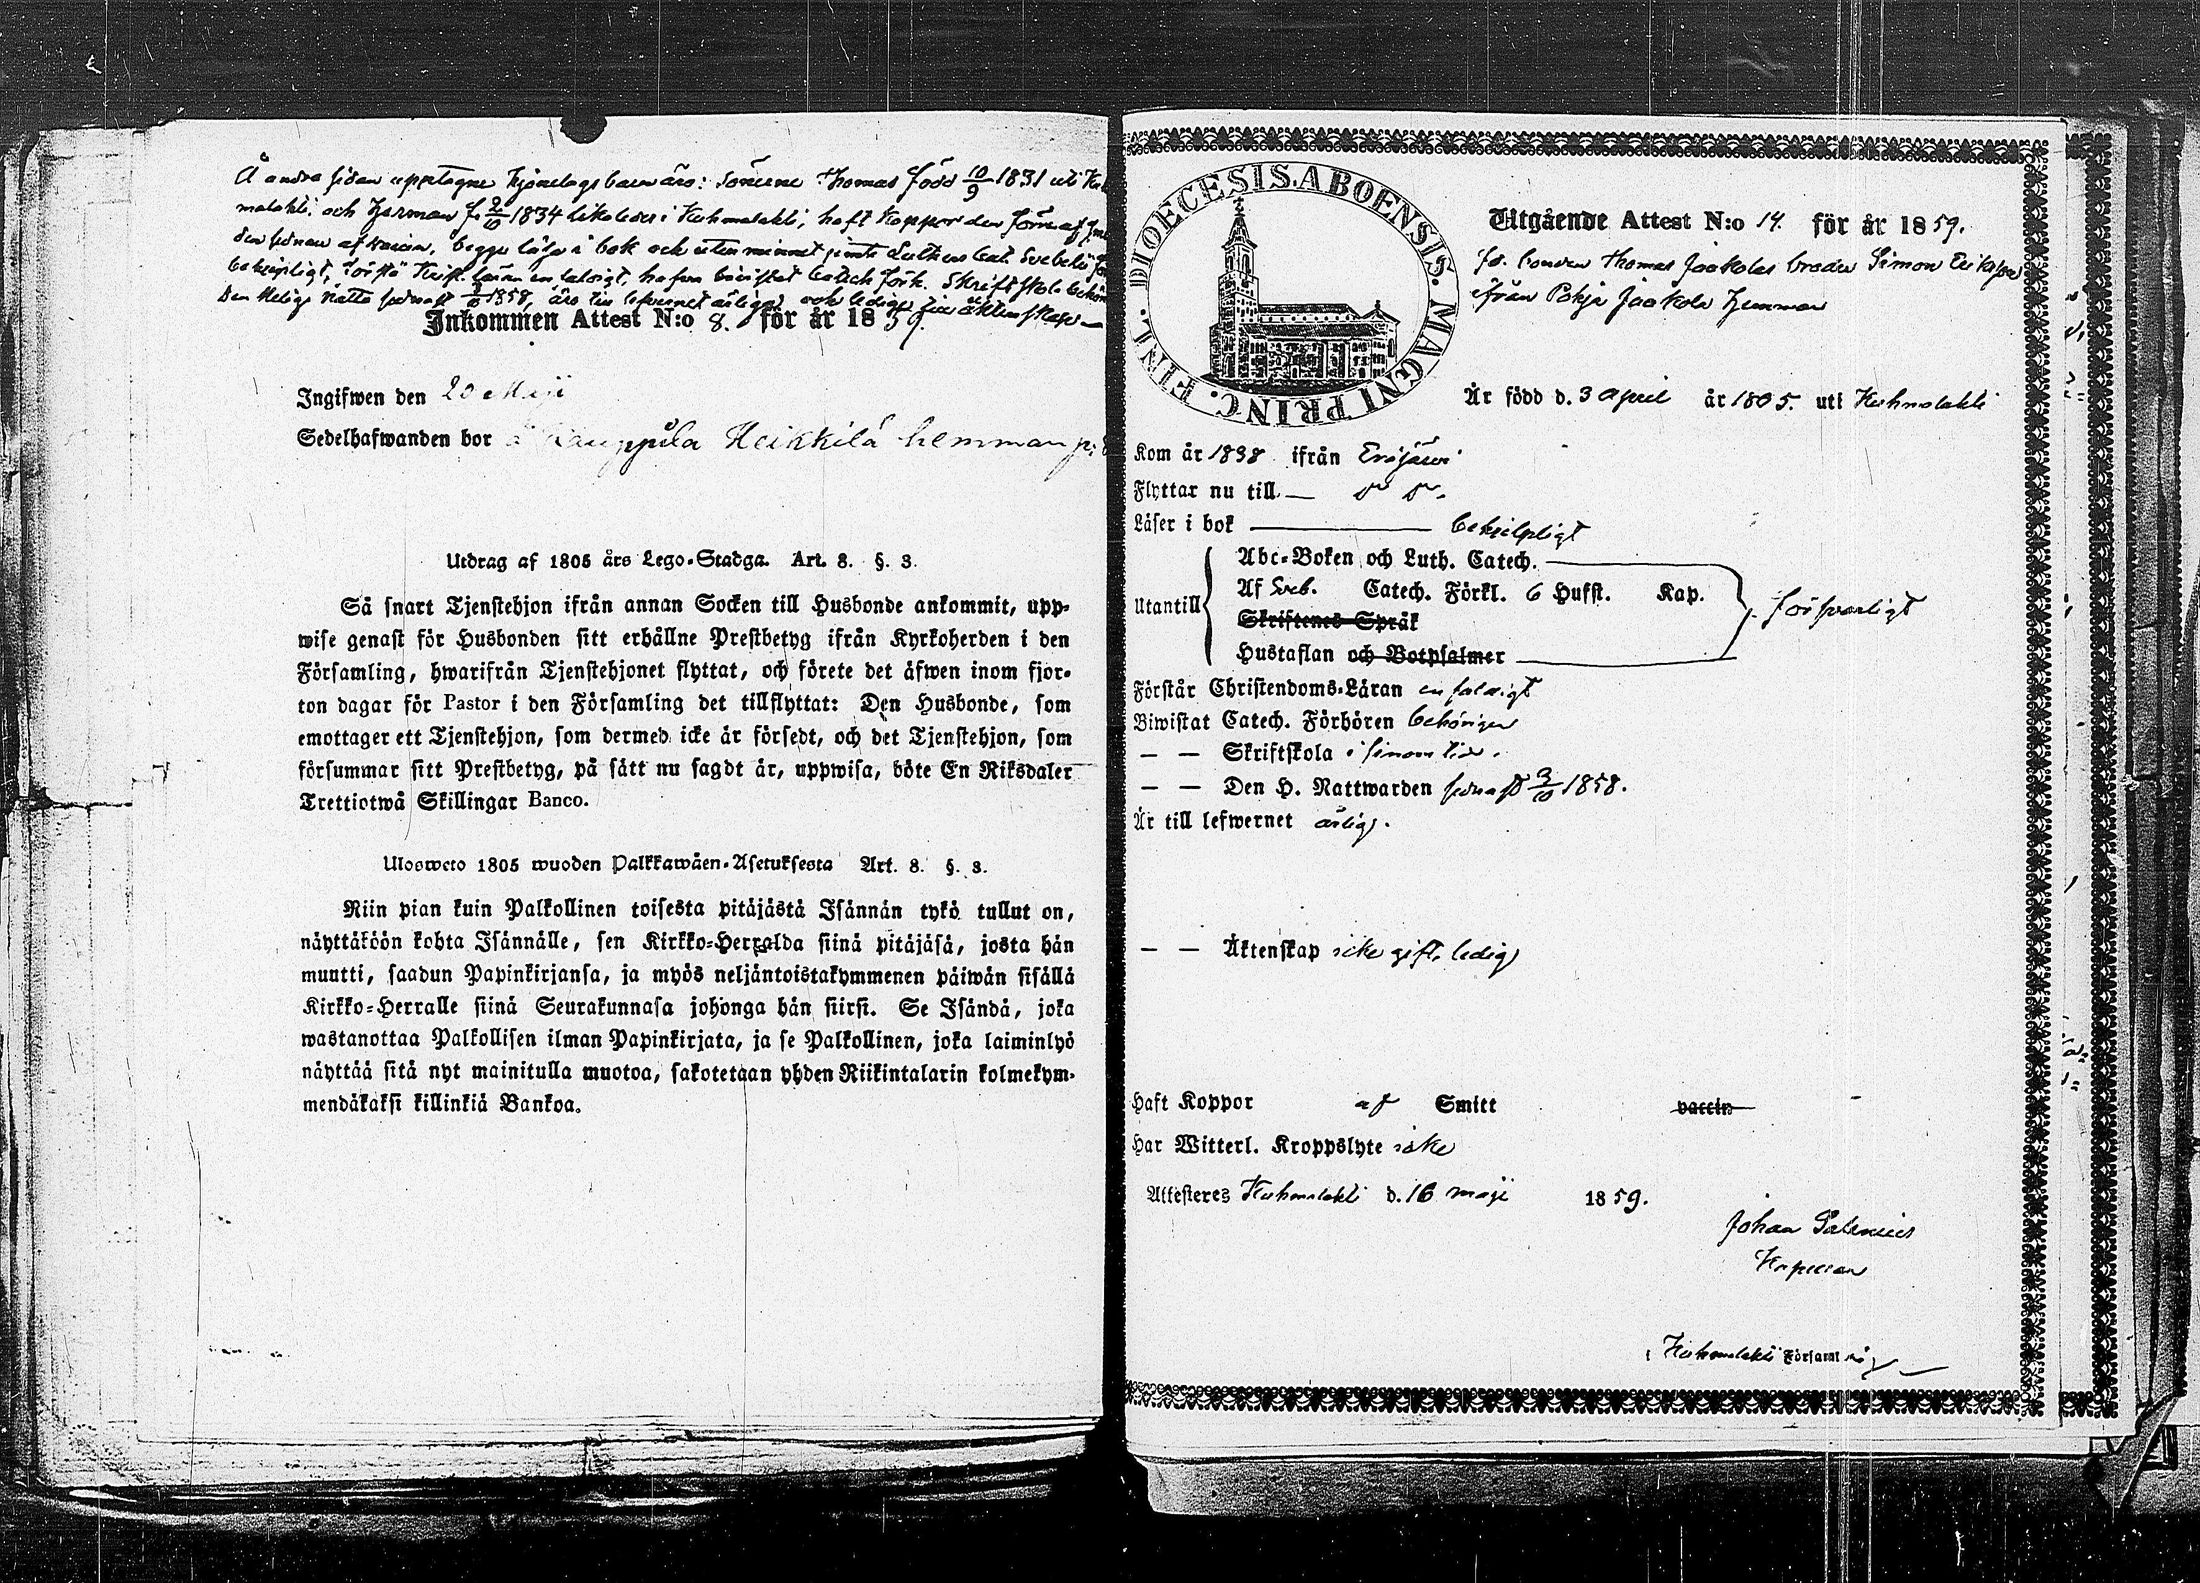 Å andra sidan upptagne hjonelags barn äro: Sönerne Thomas född 10/9 1831 uti Kuh
malakti och Herman f. 2/10 1834 likaledes i Kuhmalakti, haft koppor den förra af
den sednare af vaccin, begge läsa i bok och utur minnet jemte Lutheri Cat. Svebelii
behjelpligt, förstå Krist. läran enfaldigt, hafva bevistat Catech förh. Skriftskola behör
den Helige Nattv sednast 1858, äro till lefvernet ärliga och lediga till äktenskap —
Inkommen Attest N:o 8. för år 1859.
Ingifwen den 20 Maji
Sedelhafwanden bor å Kauppila Heikkilä hemman
Utdrag af 1805 års Lego-Stadga. Art. 8. §. 3.
Så snart Tjenstehjon ifrån annan Socken till Husbonde ankommit, upp-
wise genast för Husbonden sitt erhållne Prestbetyg ifrån Kyrkoherden i den
Församling, hwarifrån Tjenstehjonet flyttat, och förete det äfwen inom fjor-
ton dagar för Pastor i den Församling det tillflyttat: Den Husbonde, som
emottager ett Tjenstehjon, som dermed icke är försedt, och det Tjenstehjon, som
försummar sitt Prestbetyg, på sätt nu sagdt är, uppwisa, böte En Riksdaler
Trettiotwå Skillingar Banco.
Ulosweto 1805 wuoden Palkkawäen-Asetuksesta Art. 8. §. 3.
Niin pian kuin Palkollinen toisesta pitäjästä Isännän tykö tullut on,
näyttäköön kohta Isännälle, sen Kirkko-Herralda siinä pitäjäsä, josta hän
muutti, saadun Papinkirjansa, ja myös neljäntoistakymmenen päiwän sisällä
Kirkko-Herralle siinä Seurakunnasa johonga hän siirsi. Se Isändä, joka
wastanottaa Palkollisen ilman Papinkirjata, ja se Palkollinen, joka laiminlyö
näyttää sitä nyt mainitulla muotoa, sakotetaan yhden Riikintalarin kolmekym-
mendäkaksi killinkiä Bankoa.
DIOECESIS. ABOENSIS. MAGNI PRINC. FINL.
Utgående Attest N:o 14. för år 1859.
fd. bonden Thomas Jaakolas broder Simon Eriksson
ifrån Pohja Jaakola hemman
Är född d. 3 April år 1805. uti Kuhmalakti
Kom år 1838 ifrån Eräjärvi
Flyttar nu till —
Läser i bok — behjelpligt
Abc-Boken och Luth. Catech.
Utantill Af Sveb. Catech. Förkl. 6 Hufst. Kap. försvarligt
Skriftenes Språk
Hustaflan och Botpsalmer
Förstår Christendoms-Läran enfaldigt
Biwistat Catech. Förhören behörigen
— — Skriftskola i sinom tid.
— — Den H. Nattwarden sednast 3/10 1858.
Är till lefwernet ärlig.
— — Äktenskap icke gift, ledig
Haft Koppor af Smitt vaccin
Har Witterl. Kroppslyte icke
Attesteres Kuhmalakti d. 16 maji 1859.
Johan Salenius
Kapellan
i Kuhmalakti Församling